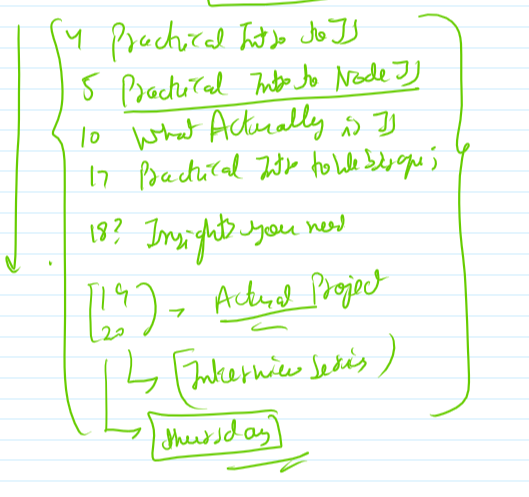 4 Practical Intro to JS
5 Practical Intro to Node JS
10 What Actually is JS
17 Practical Intro to
18? Insights you need
[19
20) → Actual Project
(Interview Series)
Thursday